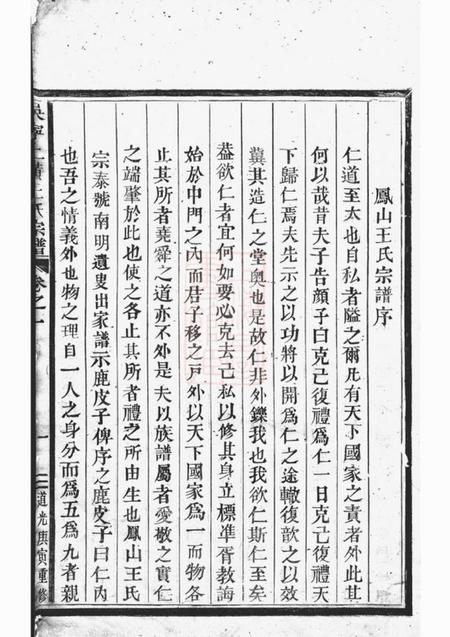 鳳山王氏宗譜序
仁道至太也自私者隘之爾凡有天下國家之責者外此其
何以哉昔夫子告顏子曰克己復禮為仁一日克己復禮天
下歸仁焉夫先示之以功將以開為仁之途轍復歆之以效
冀其造仁之堂奧也是故仁非外鑠我也我欲仁斯仁至矣
葢欲仁者宜何如要必克去己私以修其身立標準胥教誨
始於中門之內而君子移之戸外以天下國家為一而物各
止其所者堯舜之道亦不外是夫以族譜屬者愛敬之實仁
之端肇於此也使之各止其所者禮之所由生也鳳山王氏
宗泰號南明遺叟出家譜示鹿皮子俾序之鹿皮子曰仁內
也吾之情義外也物之理自一人之身分而為五為九者親
王氏宗譜
卷之一
一
道光庚寅重修